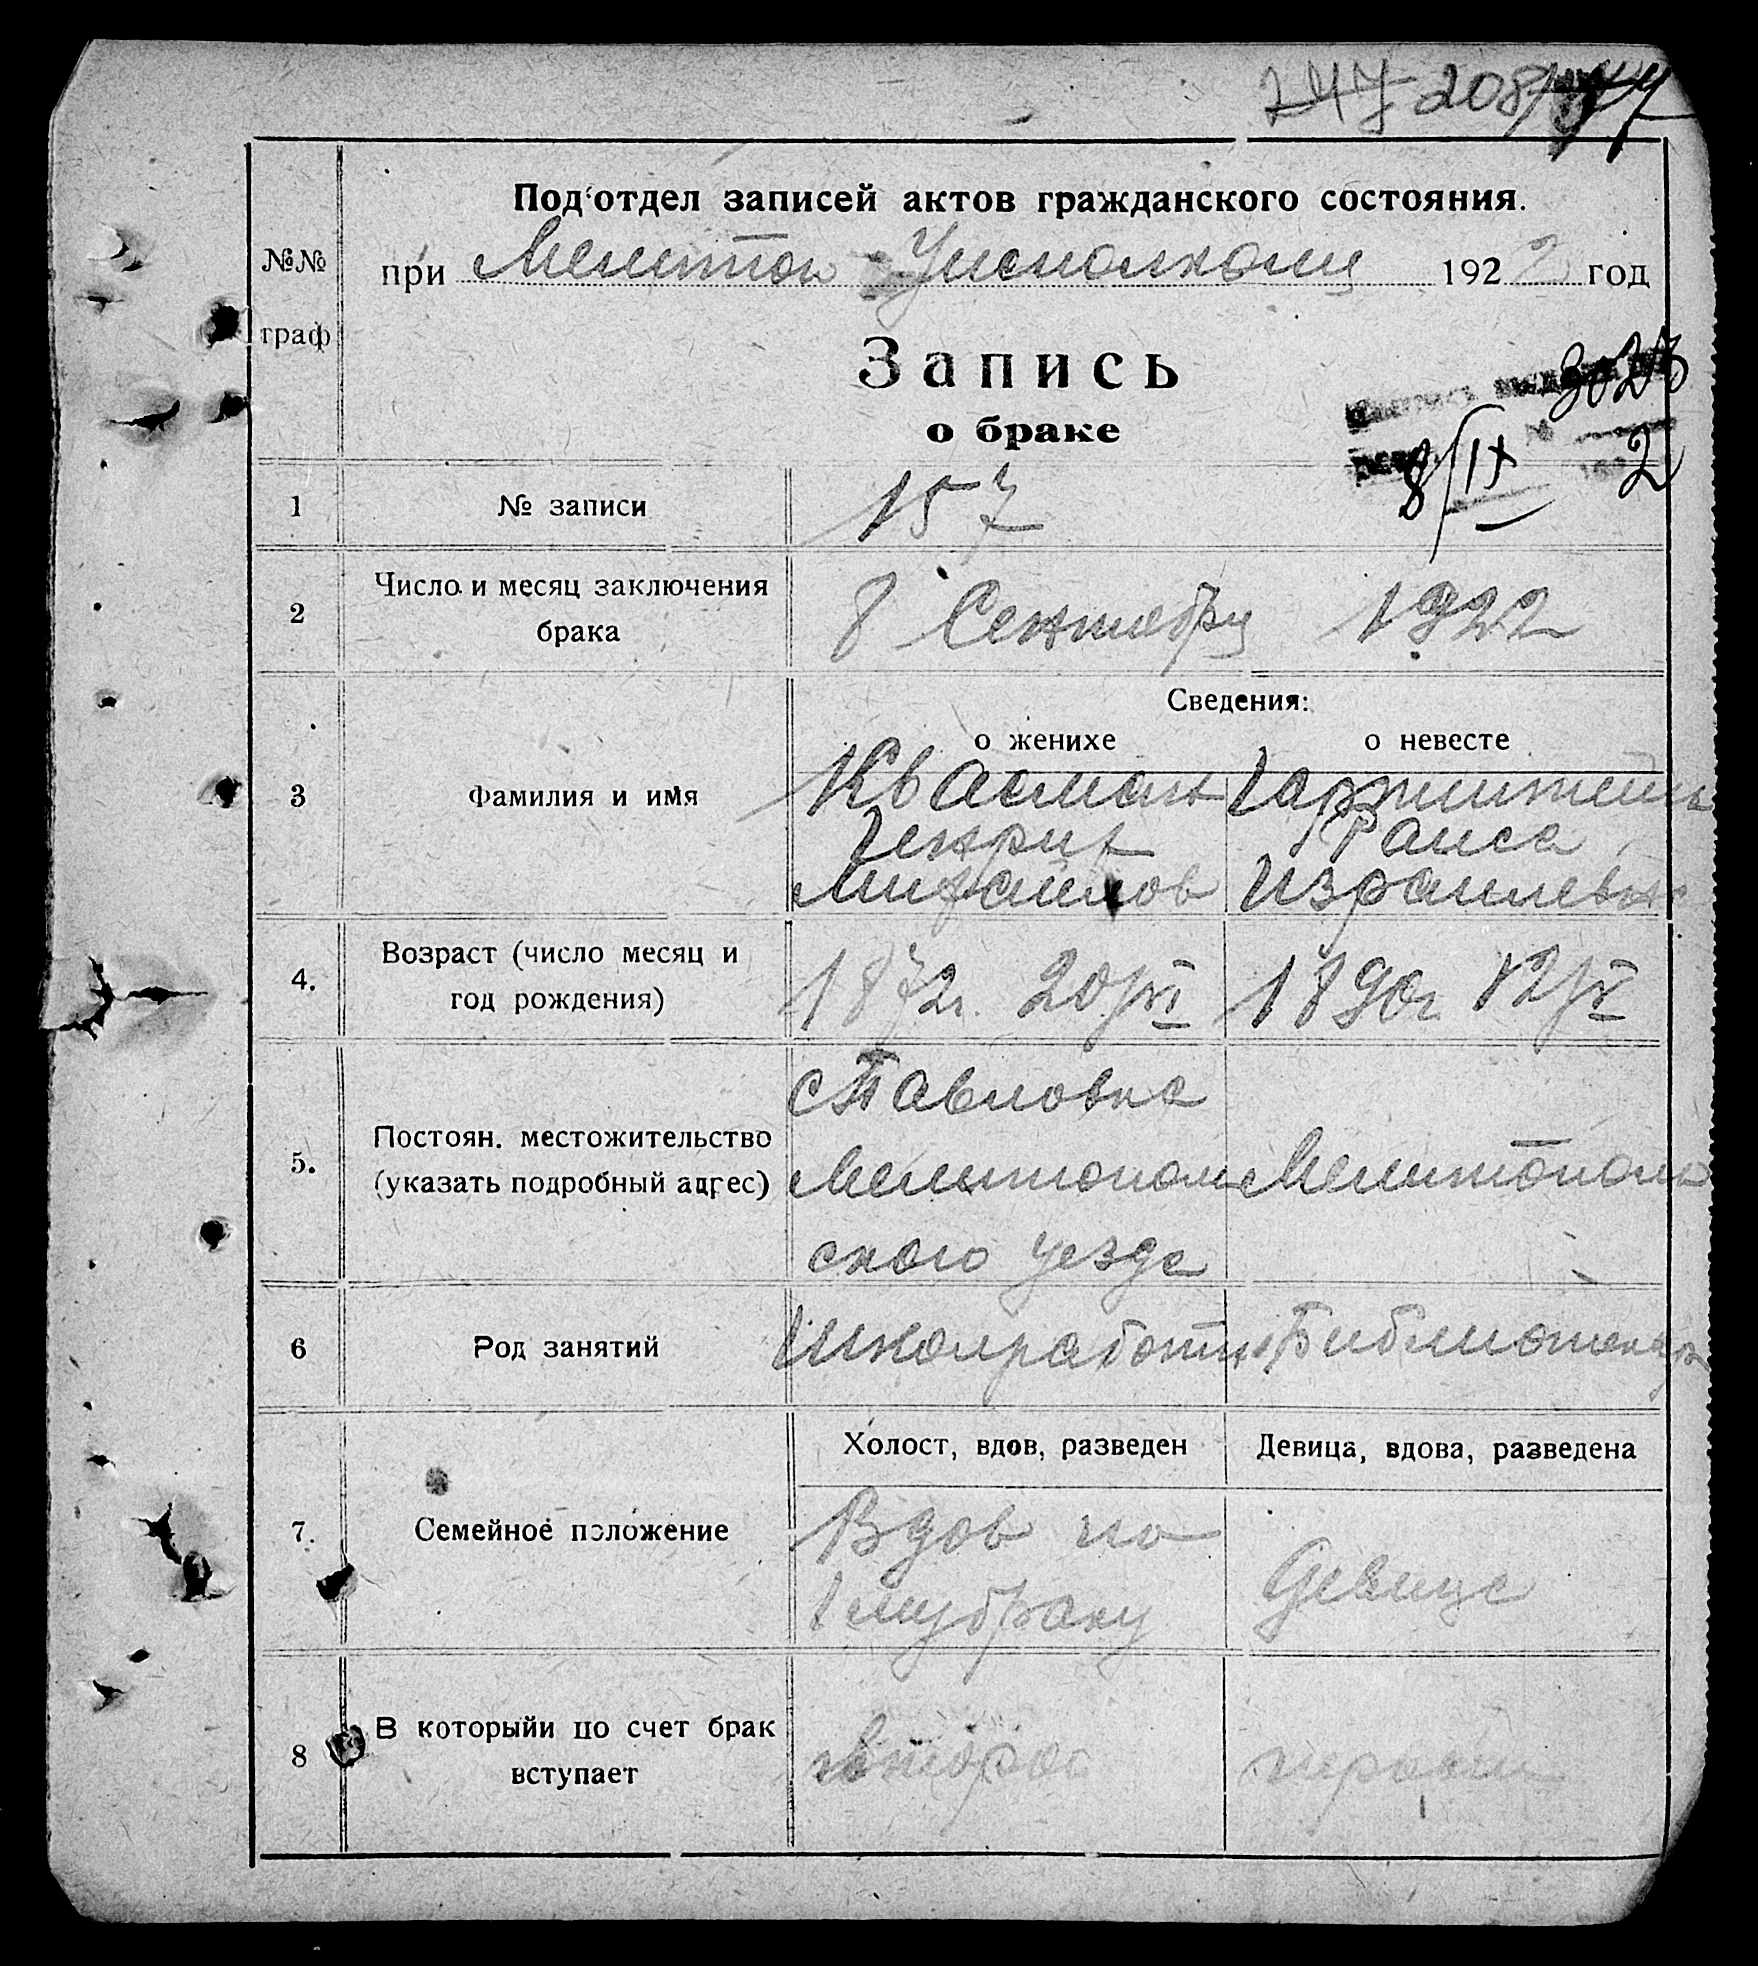 247 208
Под'отдел записей актов гражданского состояния.
№№
граф
при Мелитоп Уисполкоме 1922 год
Запись
о браке
3023
8/IX 2
1 № записи 157
2 Число и месяц заключения
брака
8 Сентября 1922
Сведения:
о женихе о невесте
3 Фамилия и имя
Квасман
Генрих
Михайлов
Раиса
Израилевна
4. Возраст (число месяц и
год рождения)
1872г. 20/VI 1890г. 12/V
5. Постоян. местожительство
(указать подробный адрес)
с Павловка
Мелитополь
ского уезда
Мелитополь
6 Род занятий
Школработн Библиотекар
Холост, вдов, разведен Девица, вдова, разведена
7. Семейное положение
Вдов по
1 му браку
Девица
8 В которыйи по счет брак
вступает
второй первый